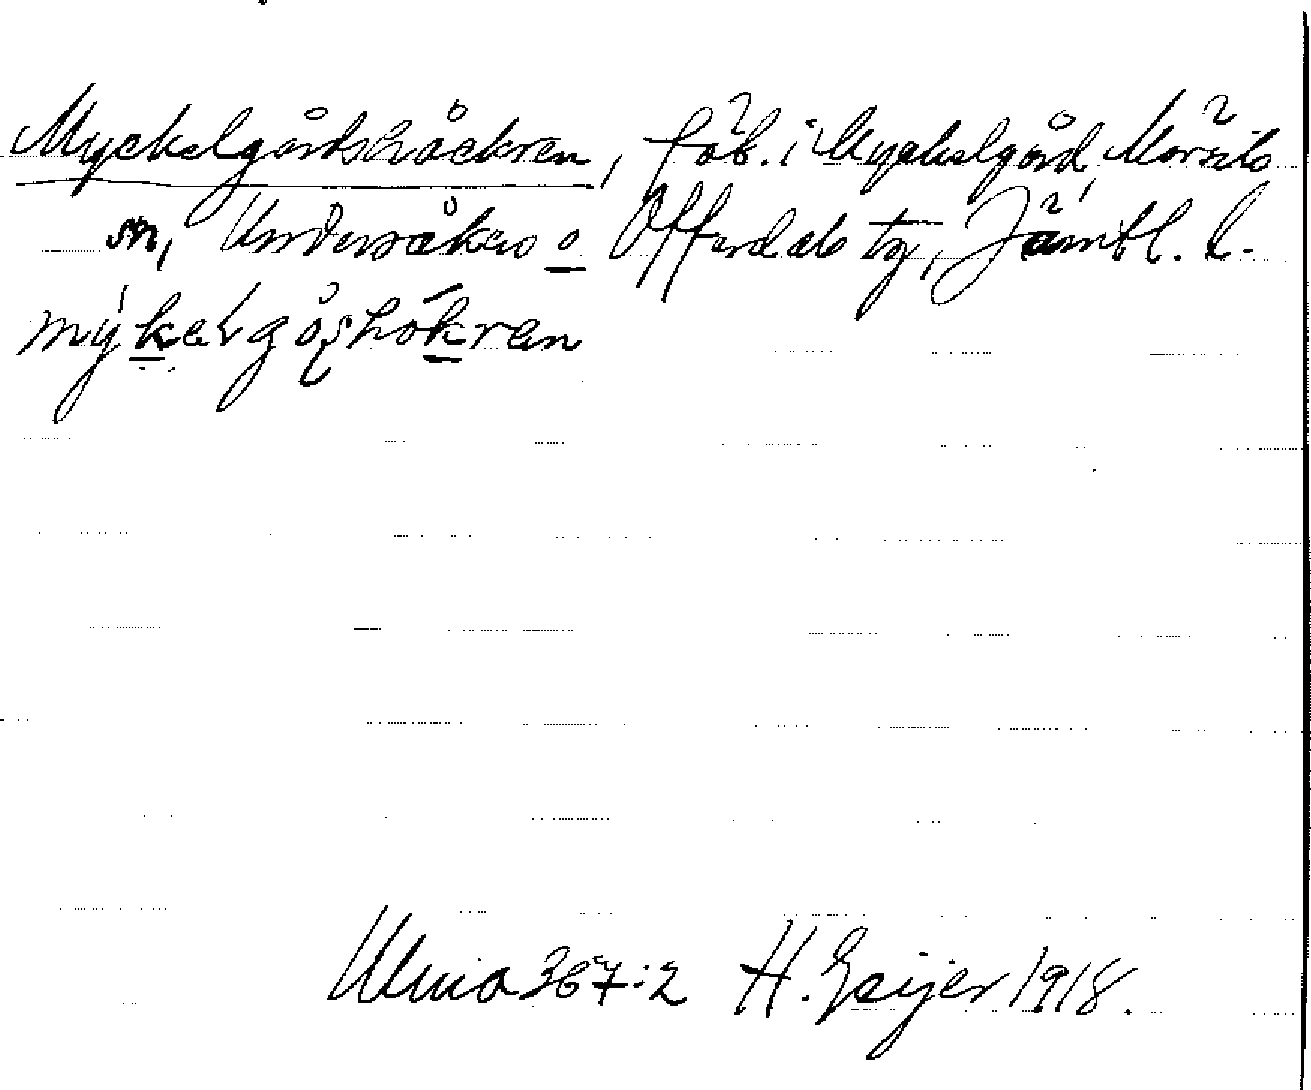 Myckelgårdshåckren, fäb. i Myckelgård, Mörsils
sn, Undersåkers o Offerdals tg, Jämtl. l.
mýkelgåshåkren
Ulma 367:2 H. Geijer 1918.